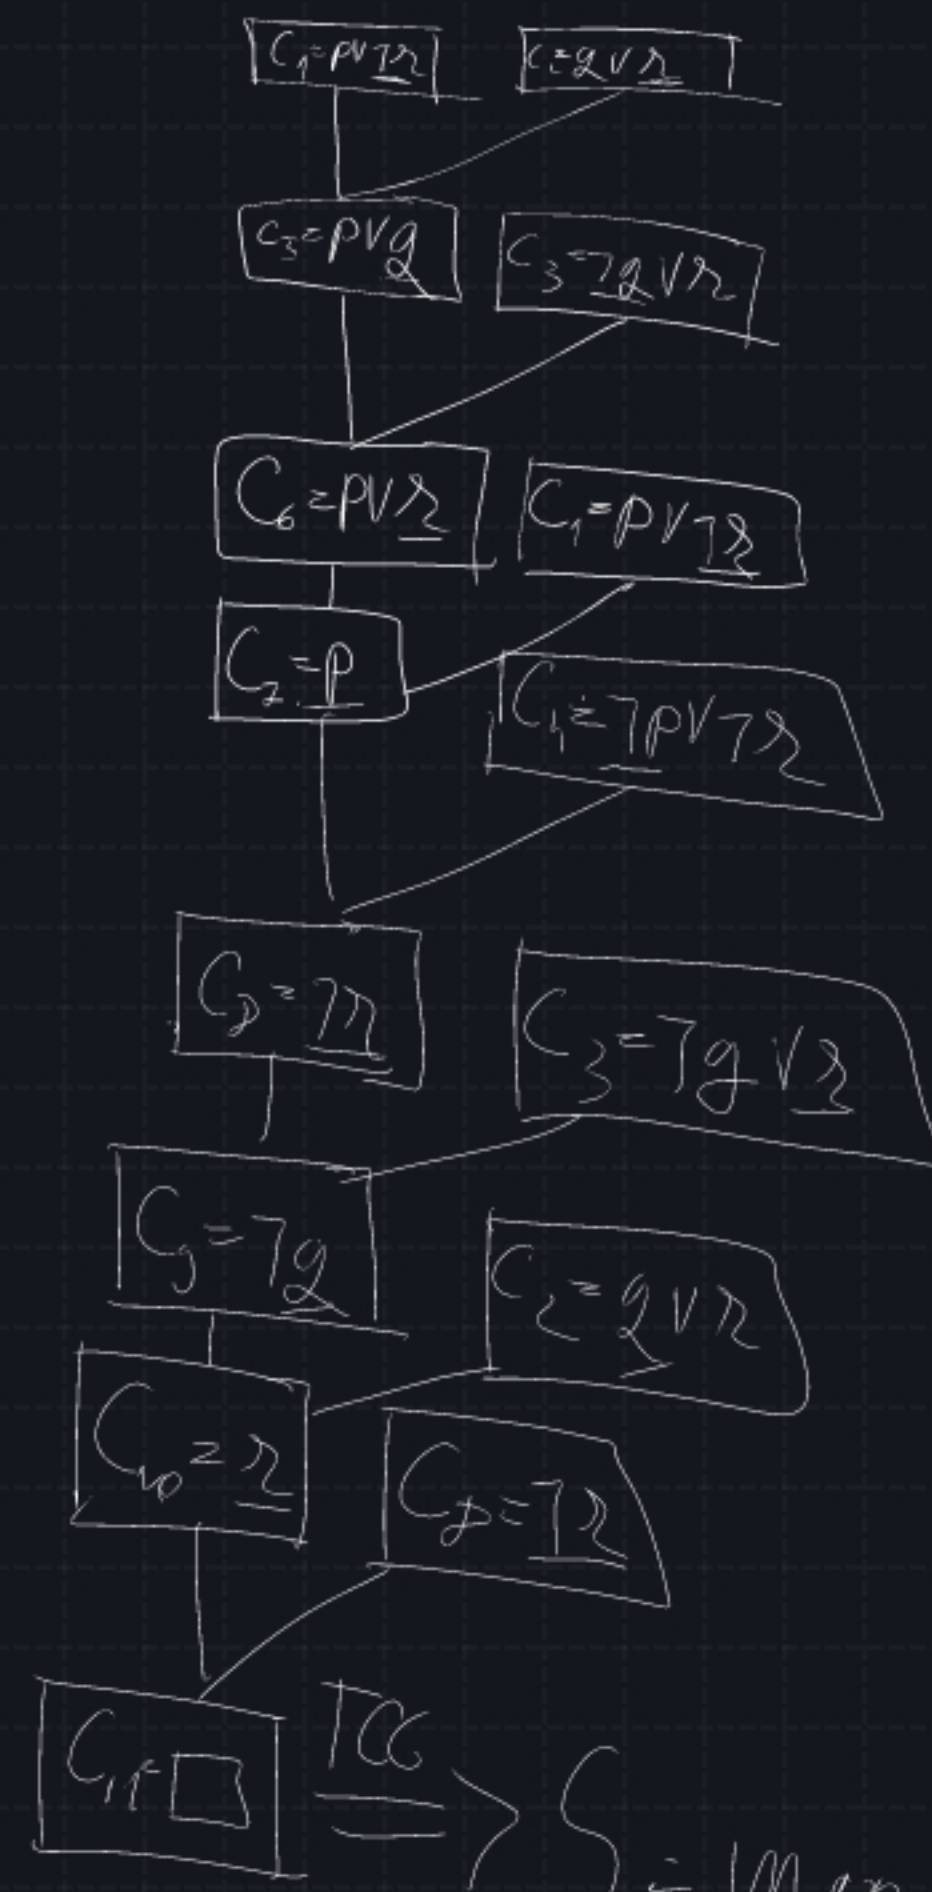 C₁=p∨¬r C₂=q∨r
C₃=p∨q C₃=¬q∨r
C₆=p∨r C₁=p∨¬r
C₇=p C₄=¬p∨¬r
C₈=¬r C₃=¬q∨r
C₉=¬q C₂=q∨r
C₁₀=r C₈=¬r
C₁₁=□ TCC